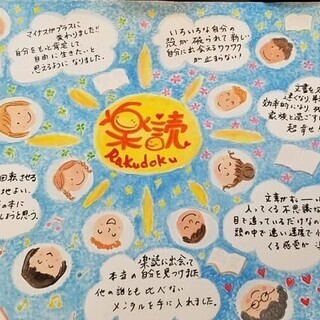 マイナスがプラスに
変わりました!!
自分をもっと肯定して
自由に生きたいと
思えるようになりました。
いろいろな自分の
殻が破られて新しい
自分に出会えるワクワク
が止まらない!
文書を
速くなり
効率的になり
家族と過ごす
超幸せ
楽読
Rakudoku
回転させる
地よい。
の本に
しようと思う。
楽読に出会って
本当の自分を見つけました
他の誰とも比べない
メンタルを手に入れました。
文書がすーーい
入ってくる不思議な
目で追っているだけなの
頭の中で速い速度で
くる感覚が